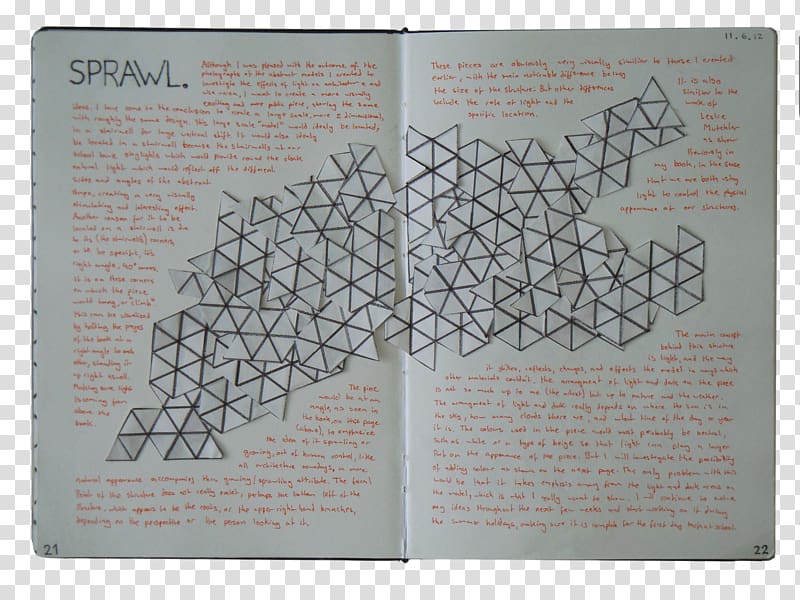 11.6.12
SPRAWL.
Although I was pleased with the outcome of the
photographs of the abstract models I created to
investigate the effects of light on architecture and
use ideas, I want to create a more visually
exciting and more public piece, sharing the same
ideas. I have come to the conclusion to create a large scale, more 2 dimensional,
with roughly the same design. This large scale "model" would ideally be located,
in a stairwell for large vertical shift. It would also ideally
be located in a stairwell because the stairwells at our
school have skylights which would provide round the clock
natural light which would reflect off the different
sides and angles of the abstract
shape, creating a very visually
stimulating and interesting effect.
Another reason for it to be
located in a stairwell is due
to its (the stairwells) corners,
or to be specific, its
right angle, 90° corners.
It is on these corners
on which the piece
would hang, or "climb"
this can be visualised
by holding the pages
of the book at a
right angle to each
other, standing it
up right as well.
Making sure light
is coming from
above the
book.
The piece
would be at an
angle, as seen in
the book, on this page
(above), to emphasize
the idea of it sprawling or
growing, out of human control, like
all architecture nowadays, a more
natural appearance accompanies this growing/sprawling attribute. The focal
Point of the structure does not really exist, perhaps the bottom left of the
structure, which appears to be the roots, or the upper right hand branches,
depending on the perspective or the person looking at it.
21
These pieces are obviously very visually similar to those I created
earlier, with the main noticeable difference being
the size of the structure. But other differences
include the role of light and the
specific location.
It is also
similar to the
work of
Leslie
Mutchler
as shown
previously in
my book, in the sense
that we are both using
light to control the physical
appearance of our structures.
The main concept
behind this structure
is light, and the way
it shines, reflects, changes, and affects the model in ways which
other materials cannot. The arrangement of light and dark on the piece
is not so much up to me (the artist) but up to nature and the weather.
The arrangement of light and dark really depends on where the sun is in
the sky, how many clouds there are, and what time of the day or year
it is. The colours used in the piece would most probably be neutral,
such as white or a type of beige so that light can play a larger
Part on the appearance of the piece. But I will investigate the possibility
of adding colour as shown on the next page. The only problem with this
would be that it takes emphasis away from the light and dark areas on
the model, which is what I really want to show. I will continue to evolve
my ideas throughout the next few weeks and start working on it during
the summer holidays, making sure it is complete for the first day back at school.
22